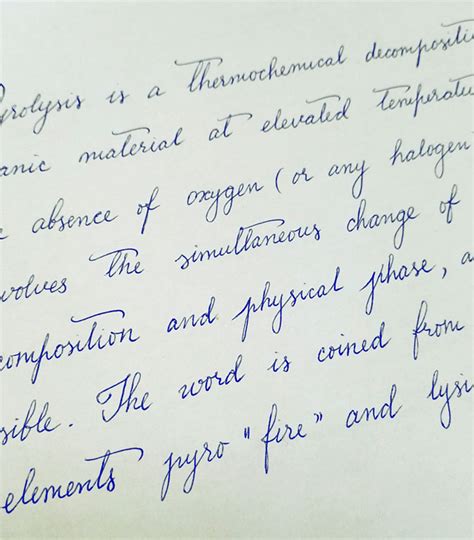 yrolysis is a thermochemical decompositi
anic material at elevated temperatu
e absence of oxygen (or any halogen
volves the simultaneous change of
composition and physical phase, a
sible. The word is coined from
elements pyro "fire" and lysi